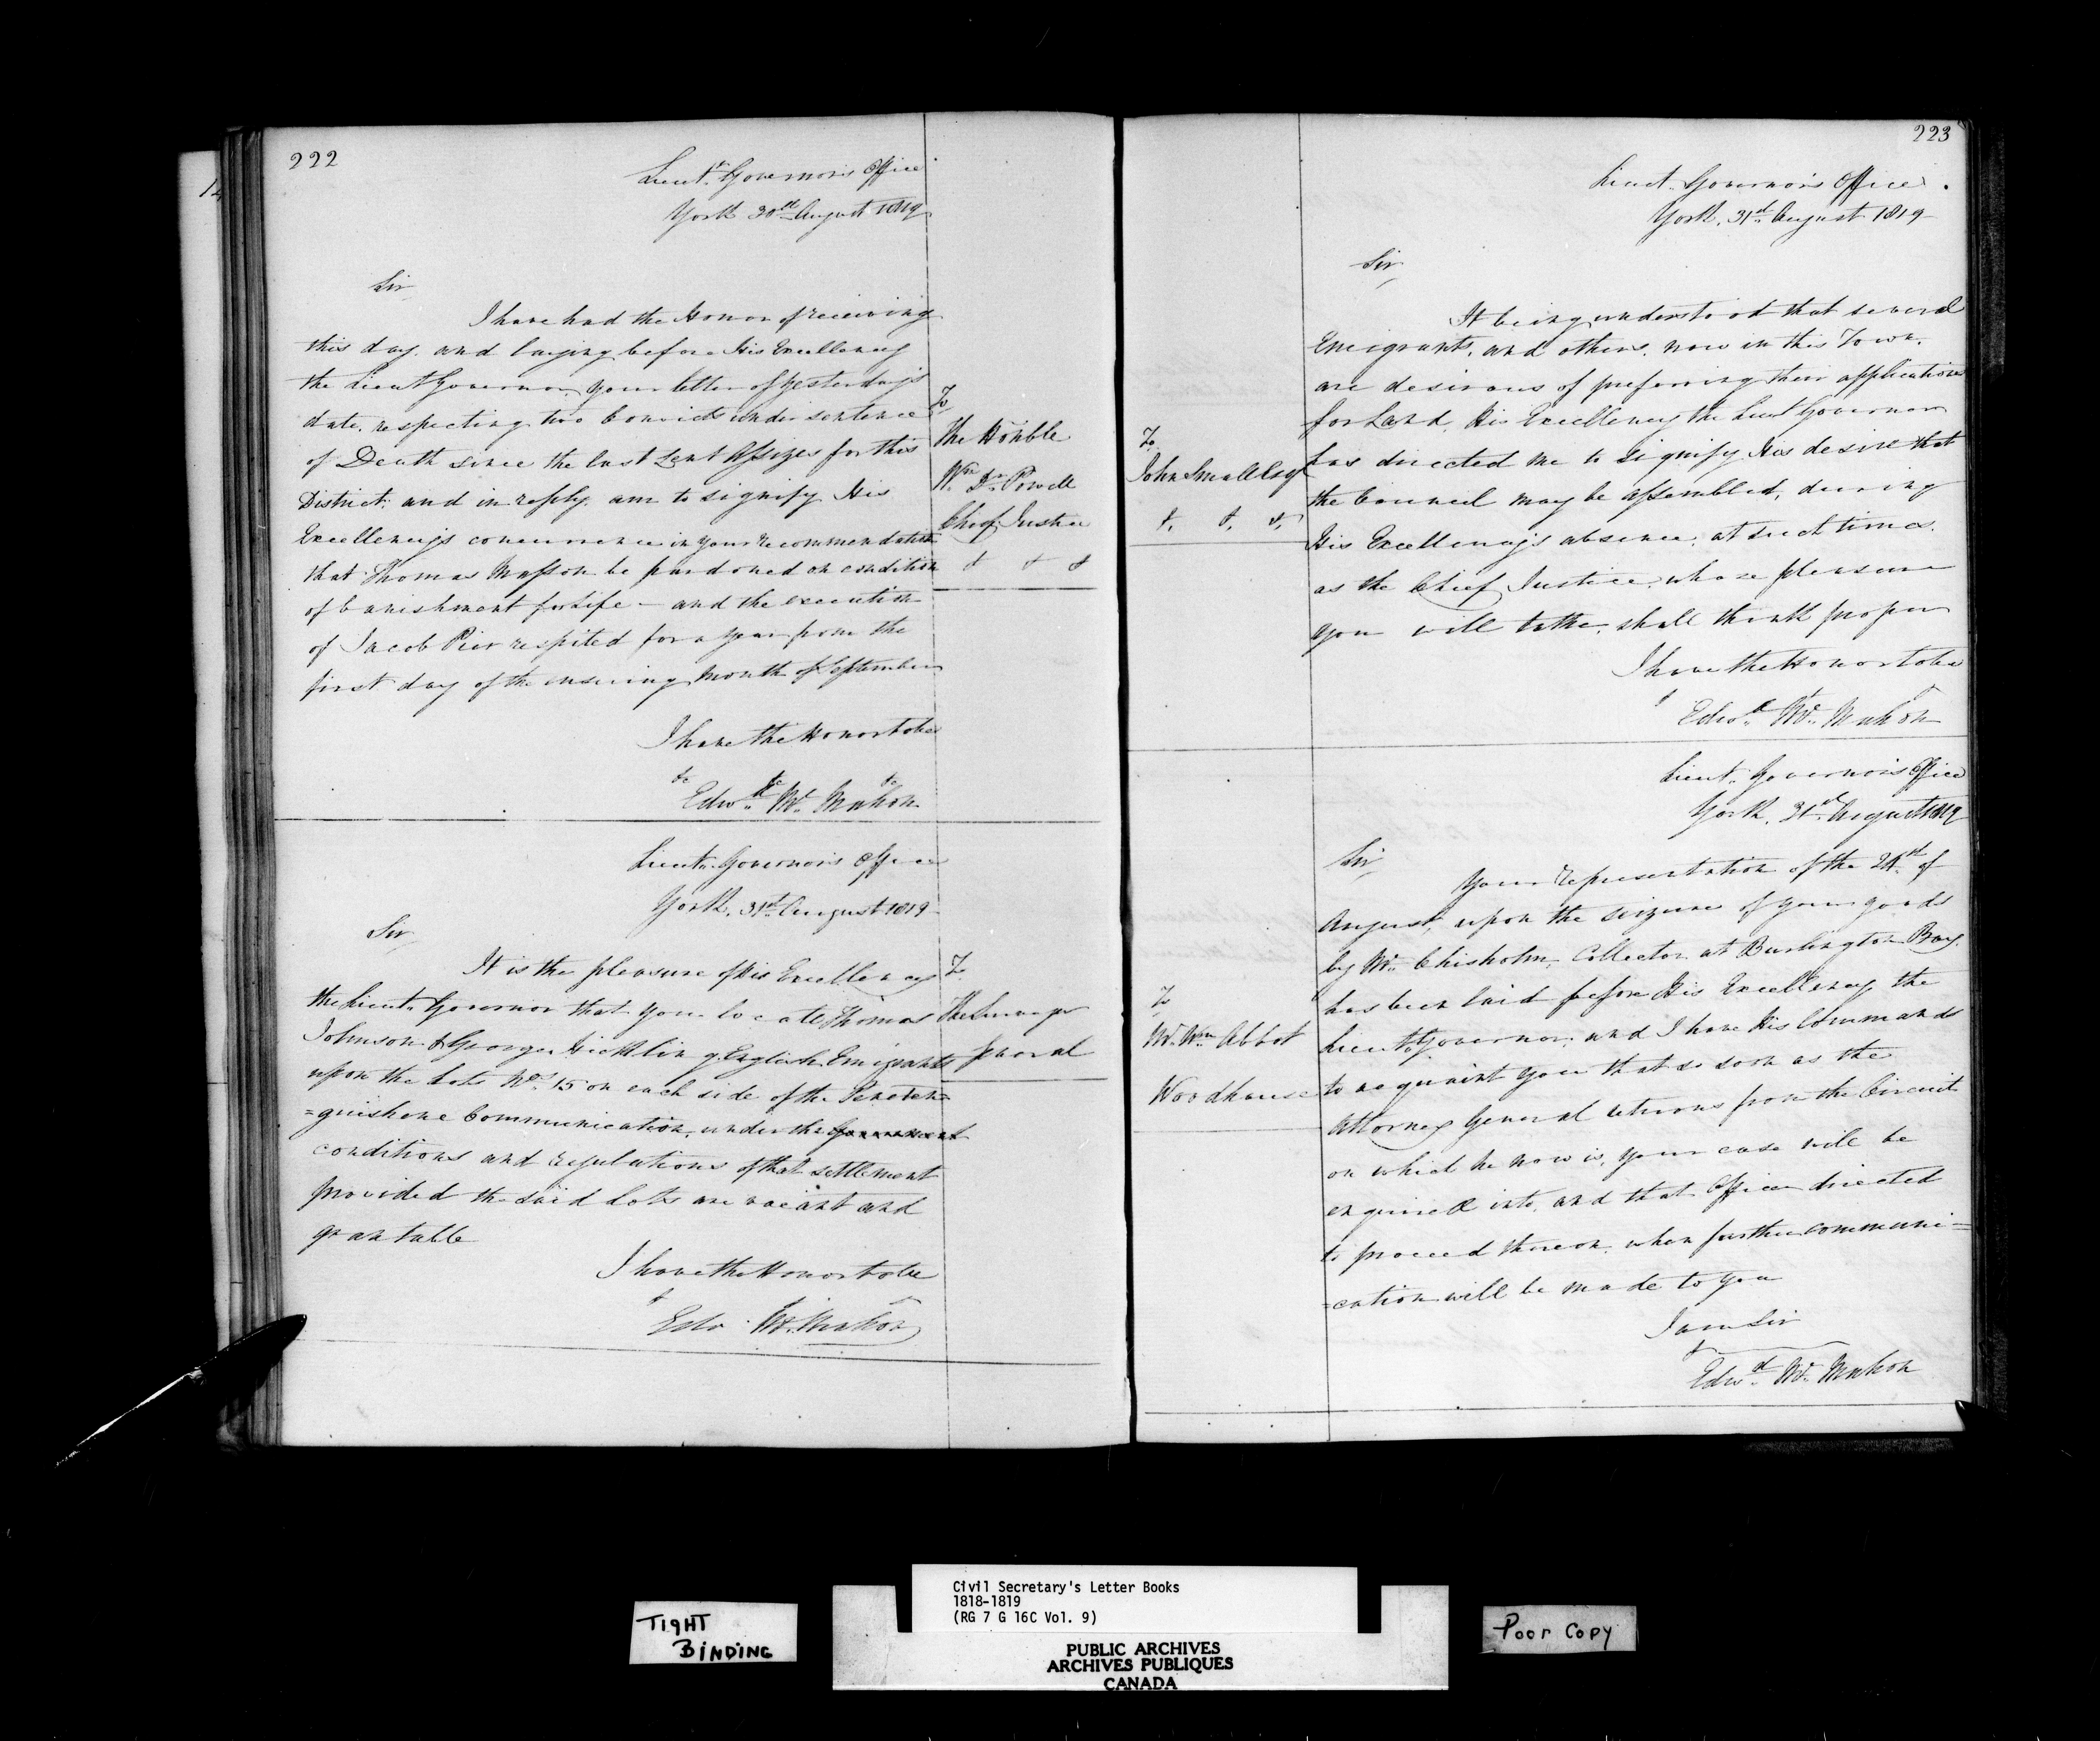 222
Lieut. Governor's Office
York 30th August 1819
Sir
I have had the Honor of receiving
this day, and laying before His Excellency
the Lieut Governor, your letter of yesterday's
date, respecting two Convicts under sentence
of Death since the last Lent Assizes for this
District; and in reply, am to signify His
Excellency's concurrence in your recommendation
that Thomas Masson be pardoned on condition
of banishment for Life – and the execution
of Jacob Pier respited for a year from the
first day of the ensuing Month of September
I have the Honor to be
&c &c &c
Edwd. Mc. Mahon
To
The Honble
Wm. Dr. Powell
Chief Justice
& & &
Lieut. Governor's Office
York, 31st August 1819
Sir
It is the pleasure of His Excellency
the Lieut. Governor that you locate Thomas
Johnson & George English Emigrants
upon the Lots Nos. 15 on each side of the Penetan=
=guishene Communication, under the Government
conditions and regulations of that settlement
provided the said Lots are vacant and
grantable
I have the Honor to be
&
Edw. Mc. Mahon
To
The Surveyor
General
223
Lieut. Governor's Office
York, 31st August 1819
Sir
It being understood that several
Emigrants, and others, now in this Town,
are desirous of preferring their applications
for Land, His Excellency the Lieut Governor
has directed me to signify His desire that
the Council may be assembled, during
His Excellency's absence, at such times,
as the Chief Justice, whose pleasure
you will take, shall think proper
I have the Honor to be
&
Edwd. Mc. Mahon
To
John Small Esq
&. &. &.
Lieut. Governor's Office
York, 31st August 1819
Sir
Your representation of the of
August, upon the seizure of your goods
by Mr. Chisholm, Collector at Burlington Bay,
has been laid before His Excellency the
Lieut. Governor; and I have His Commands
to acquaint you that so soon as the
Attorney General returns from the Circuit
on which he now is, your case will be
enquired into, and that Officer directed
to proceed thereon, when further communi=
=cation will be made to you
I am Sir
&
Edwd. Mc. Mahon
To
Mr. Wm Abbot
Woodhouse
TIGHT
BINDING
Civil Secretary's Letter Books
1818-1819
(RG 7 G 16C Vol. 9)
PUBLIC ARCHIVES
ARCHIVES PUBLIQUES
CANADA
Poor Copy